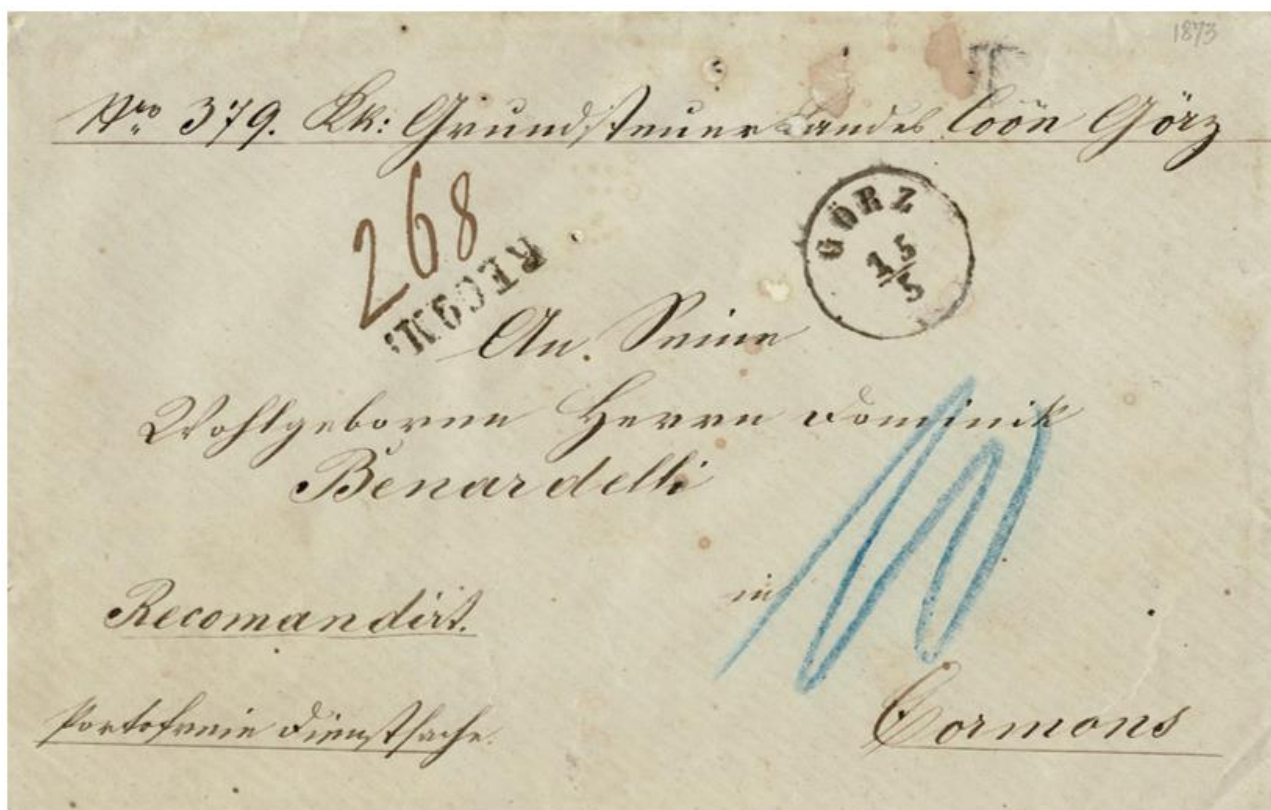 1873
Nro 379. KK: Grundsteuer Landes Coõn Görz
268
RECOM:
GÖRZ
15/5
An Seine
Wohlgeborne Herrn Dominik
Benardelli
in
10
Recomandirt.
Cormons
Portofreie Dienstsache.